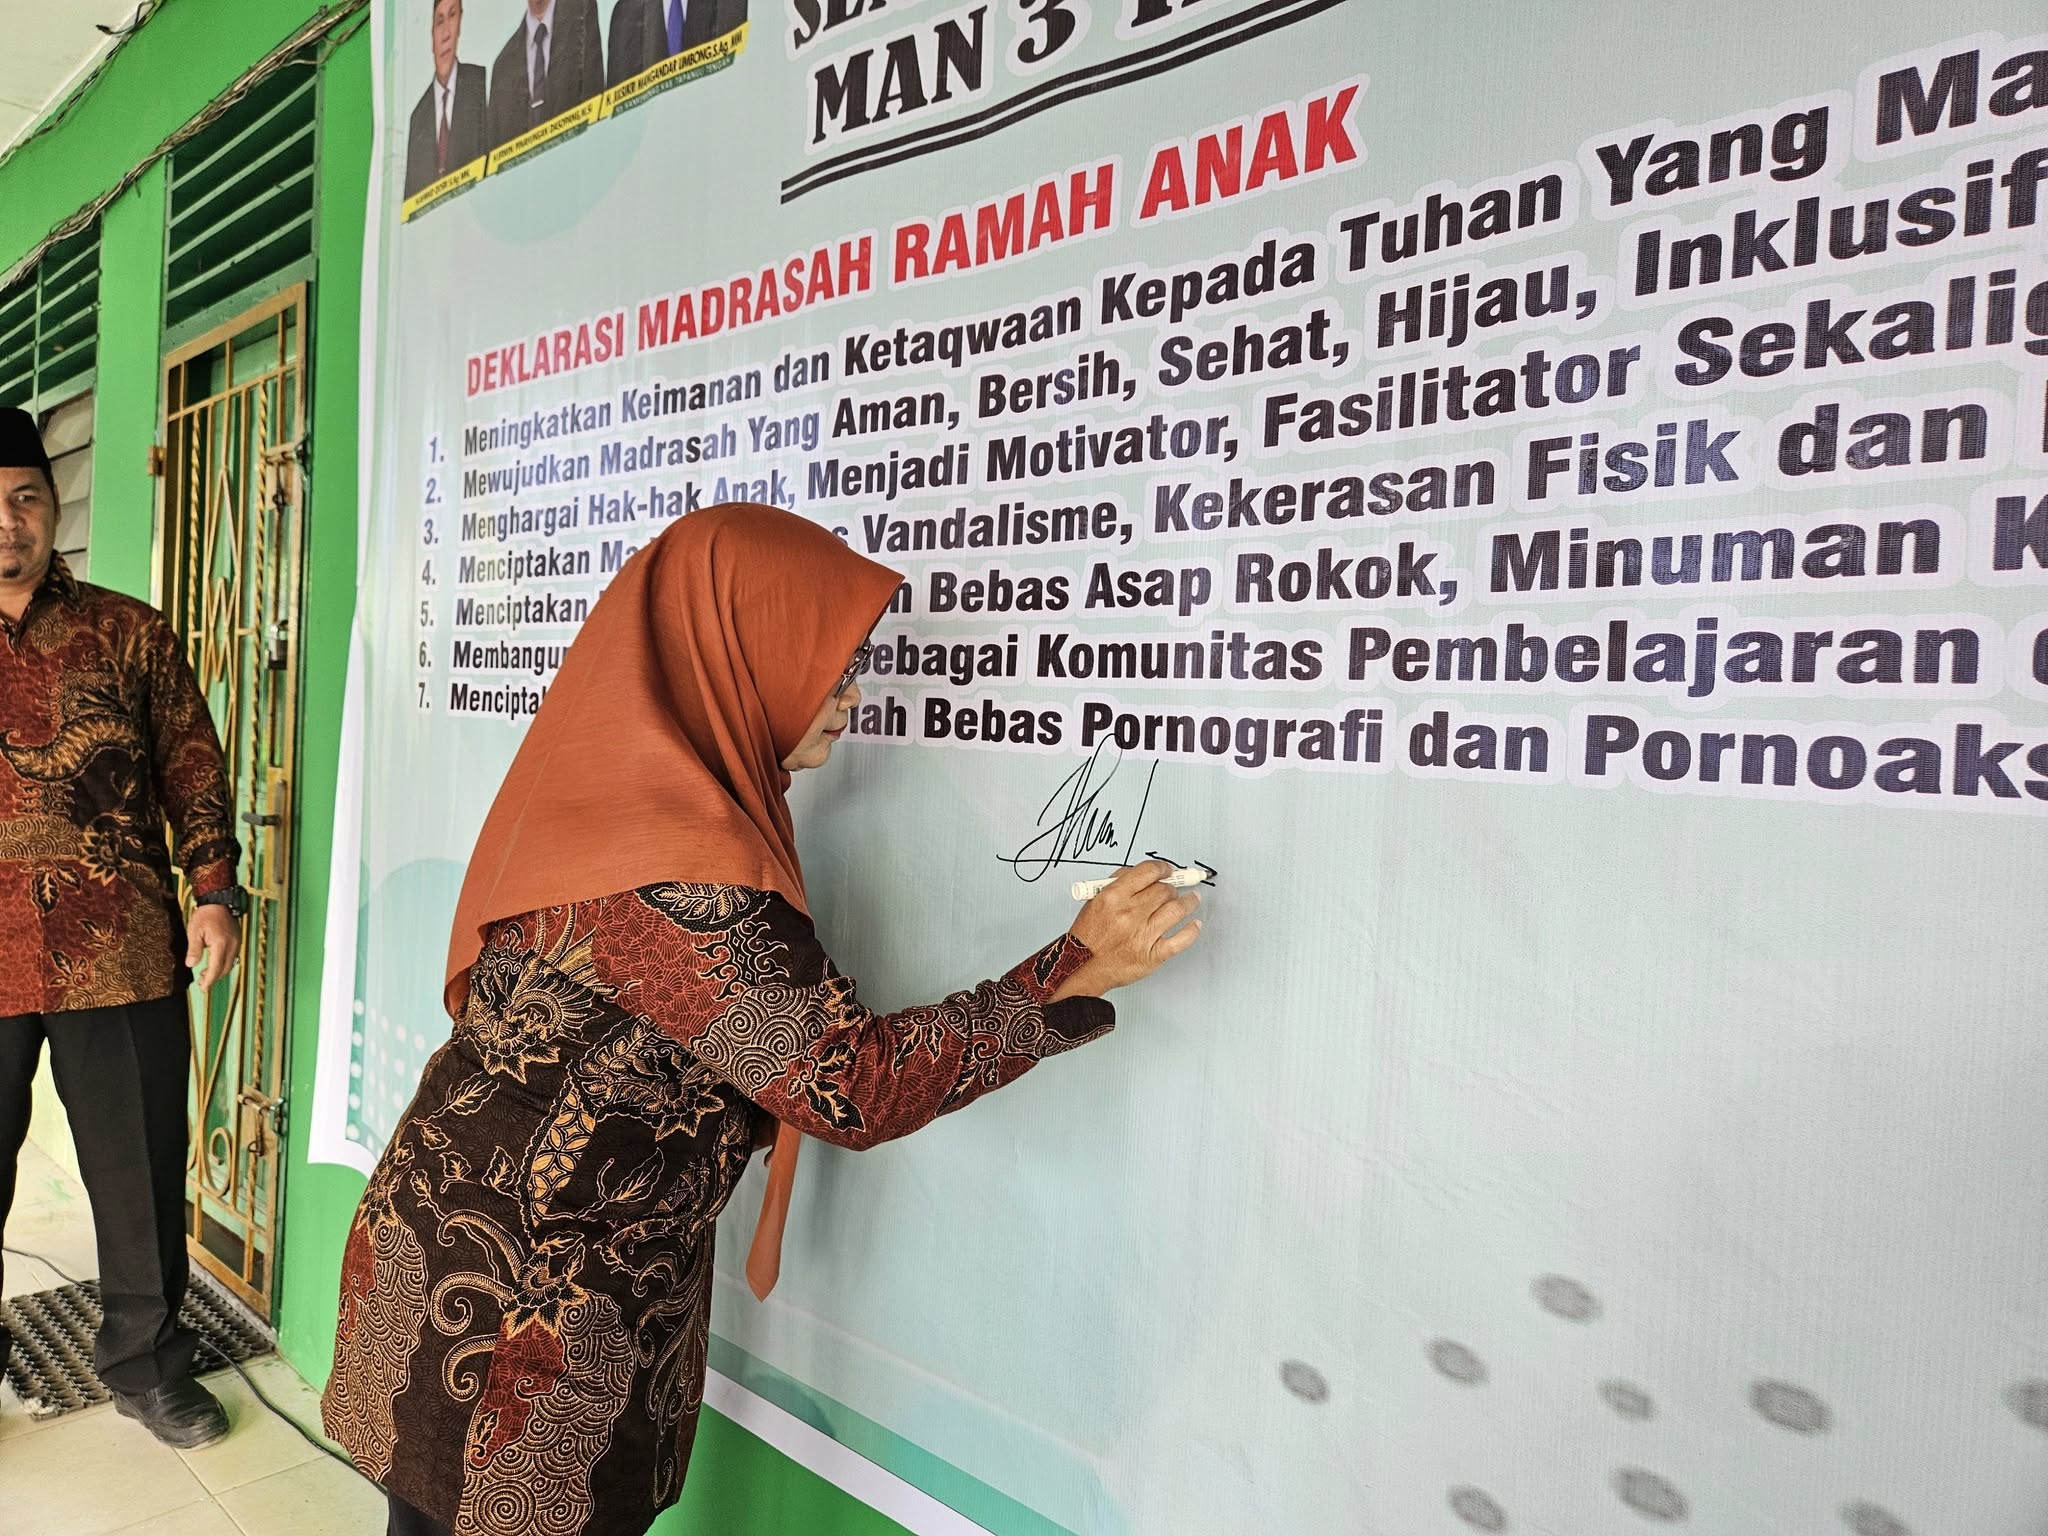 H. JUSUKRI MANGANDAR LIMBONG,S.Ag, MM
MAN 3
DEKLARASI MADRASAH RAMAH ANAK
1. Meningkatkan Keimanan dan Ketaqwaan Kepada Tuhan Yang Ma
2. Mewujudkan Madrasah Yang Aman, Bersih, Sehat, Hijau, Inklusif
3. Menghargai Hak-hak Anak, Menjadi Motivator, Fasilitator Sekalig
4. Menciptakan Ma s Vandalisme, Kekerasan Fisik dan
5. Menciptakan n Bebas Asap Rokok, Minuman K
6. Membangu sebagai Komunitas Pembelajaran d
7. Mencipta lah Bebas Pornografi dan Pornoaks